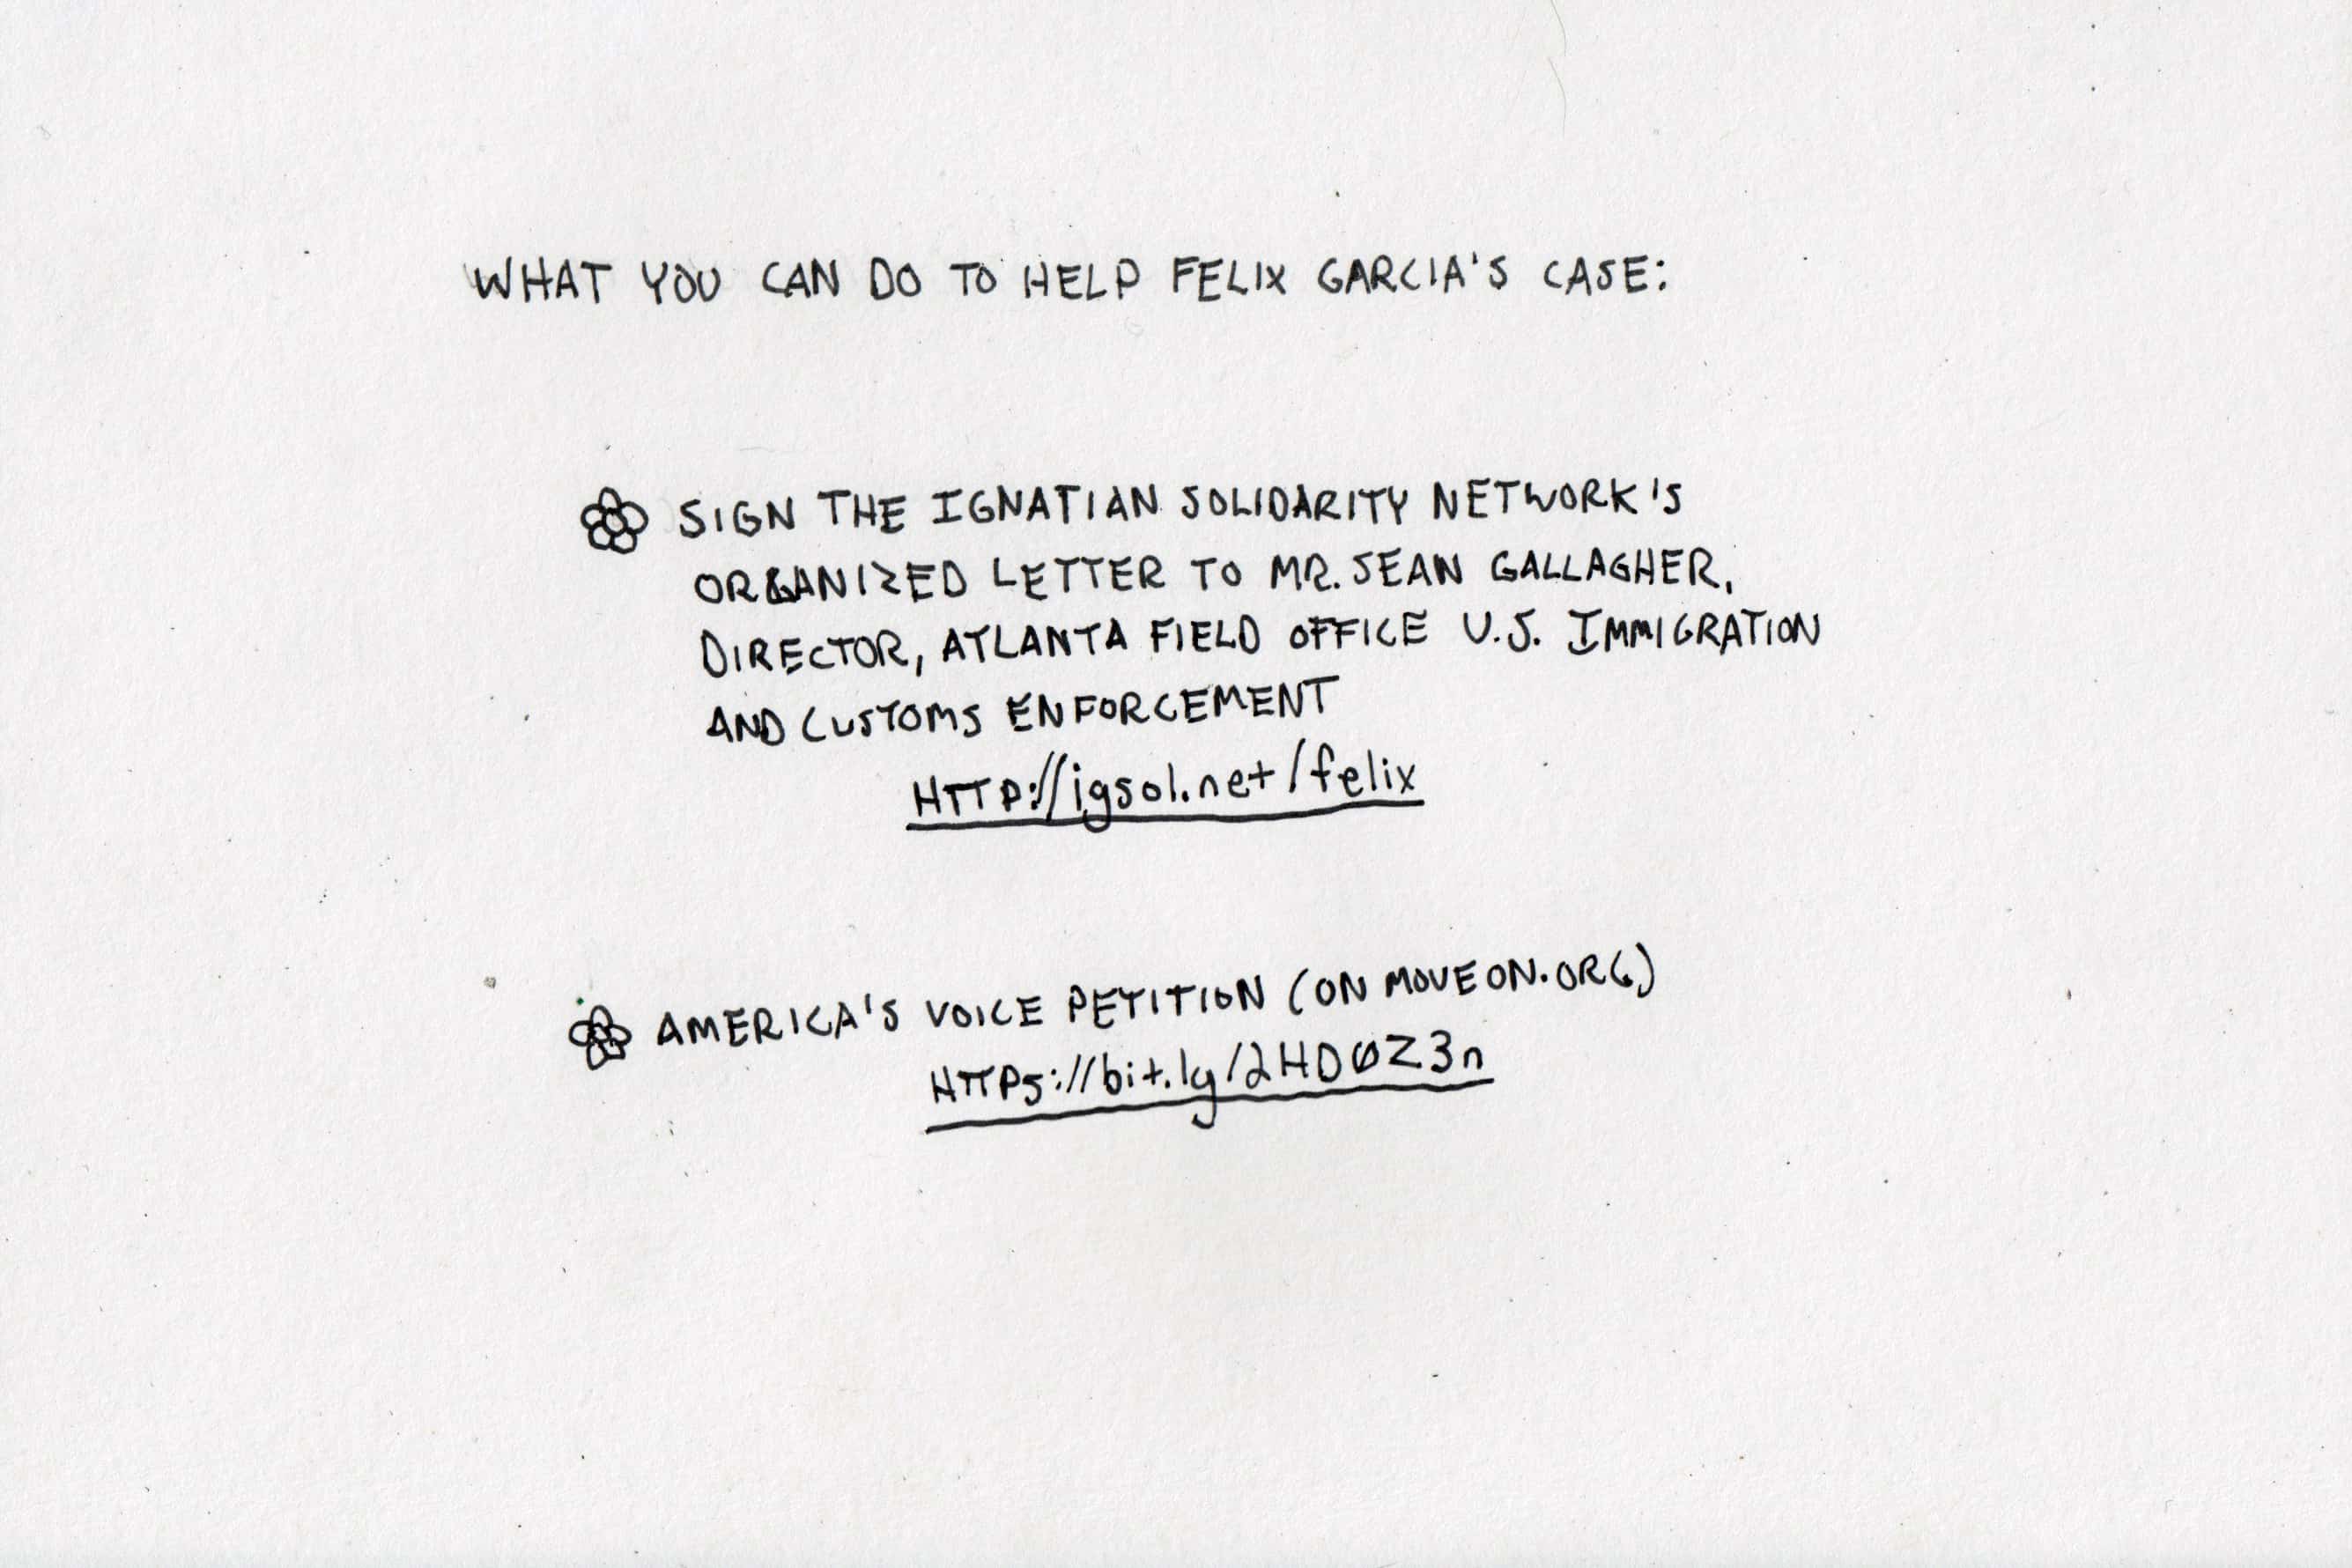 WHAT YOU CAN DO TO HELP FELIX GARCIA'S CASE:
SIGN THE IGNATIAN SOLIDARITY NETWORK'S
ORGANIZED LETTER TO MR. SEAN GALLAGHER,
DIRECTOR, ATLANTA FIELD OFFICE U.S. IMMIGRATION
AND CUSTOMS ENFORCEMENT
HTTP://igsol.net/felix
AMERICA'S VOICE PETITION (ON MOVEON.ORG)
HTTPS://bit.ly/2HD0Z3n